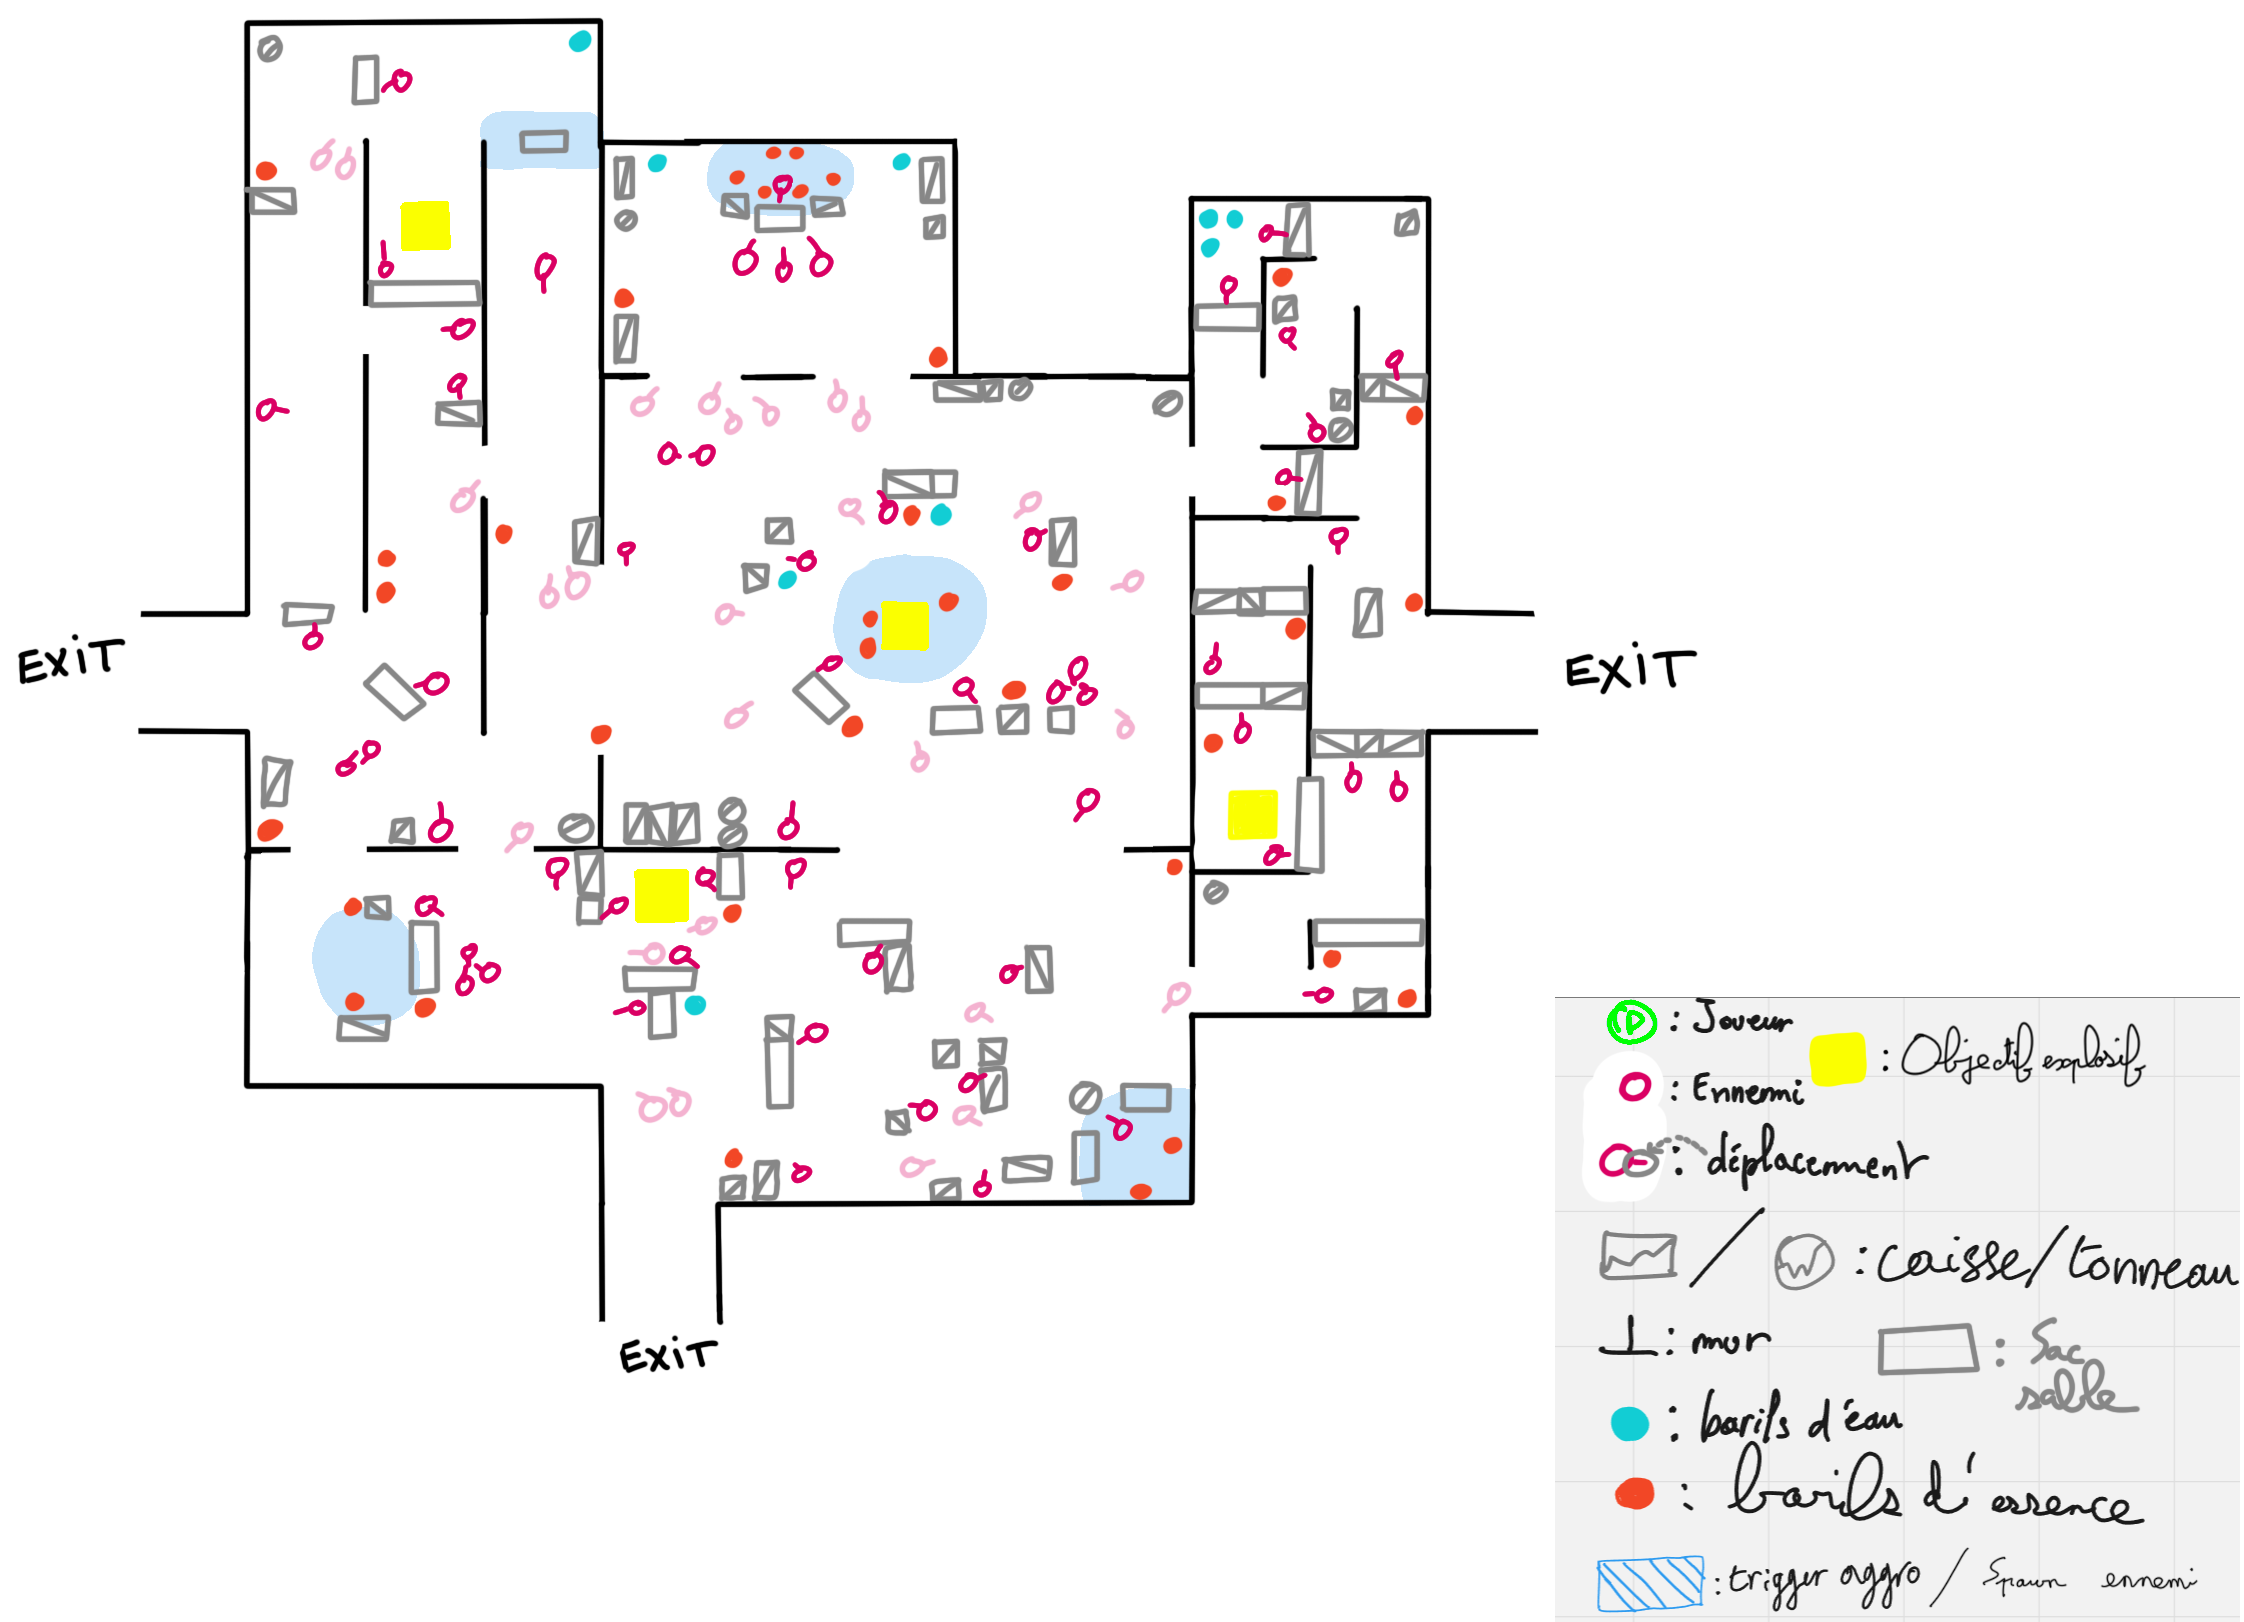 EXiT
EXiT
EXiT
: Joueur
: Objectif explosif
: Ennemi
: déplacement
: caisse/tonneau
: mur
: Sac
sable
: barils d'eau
: barils d'essence
: trigger aggro / Spawn ennemi